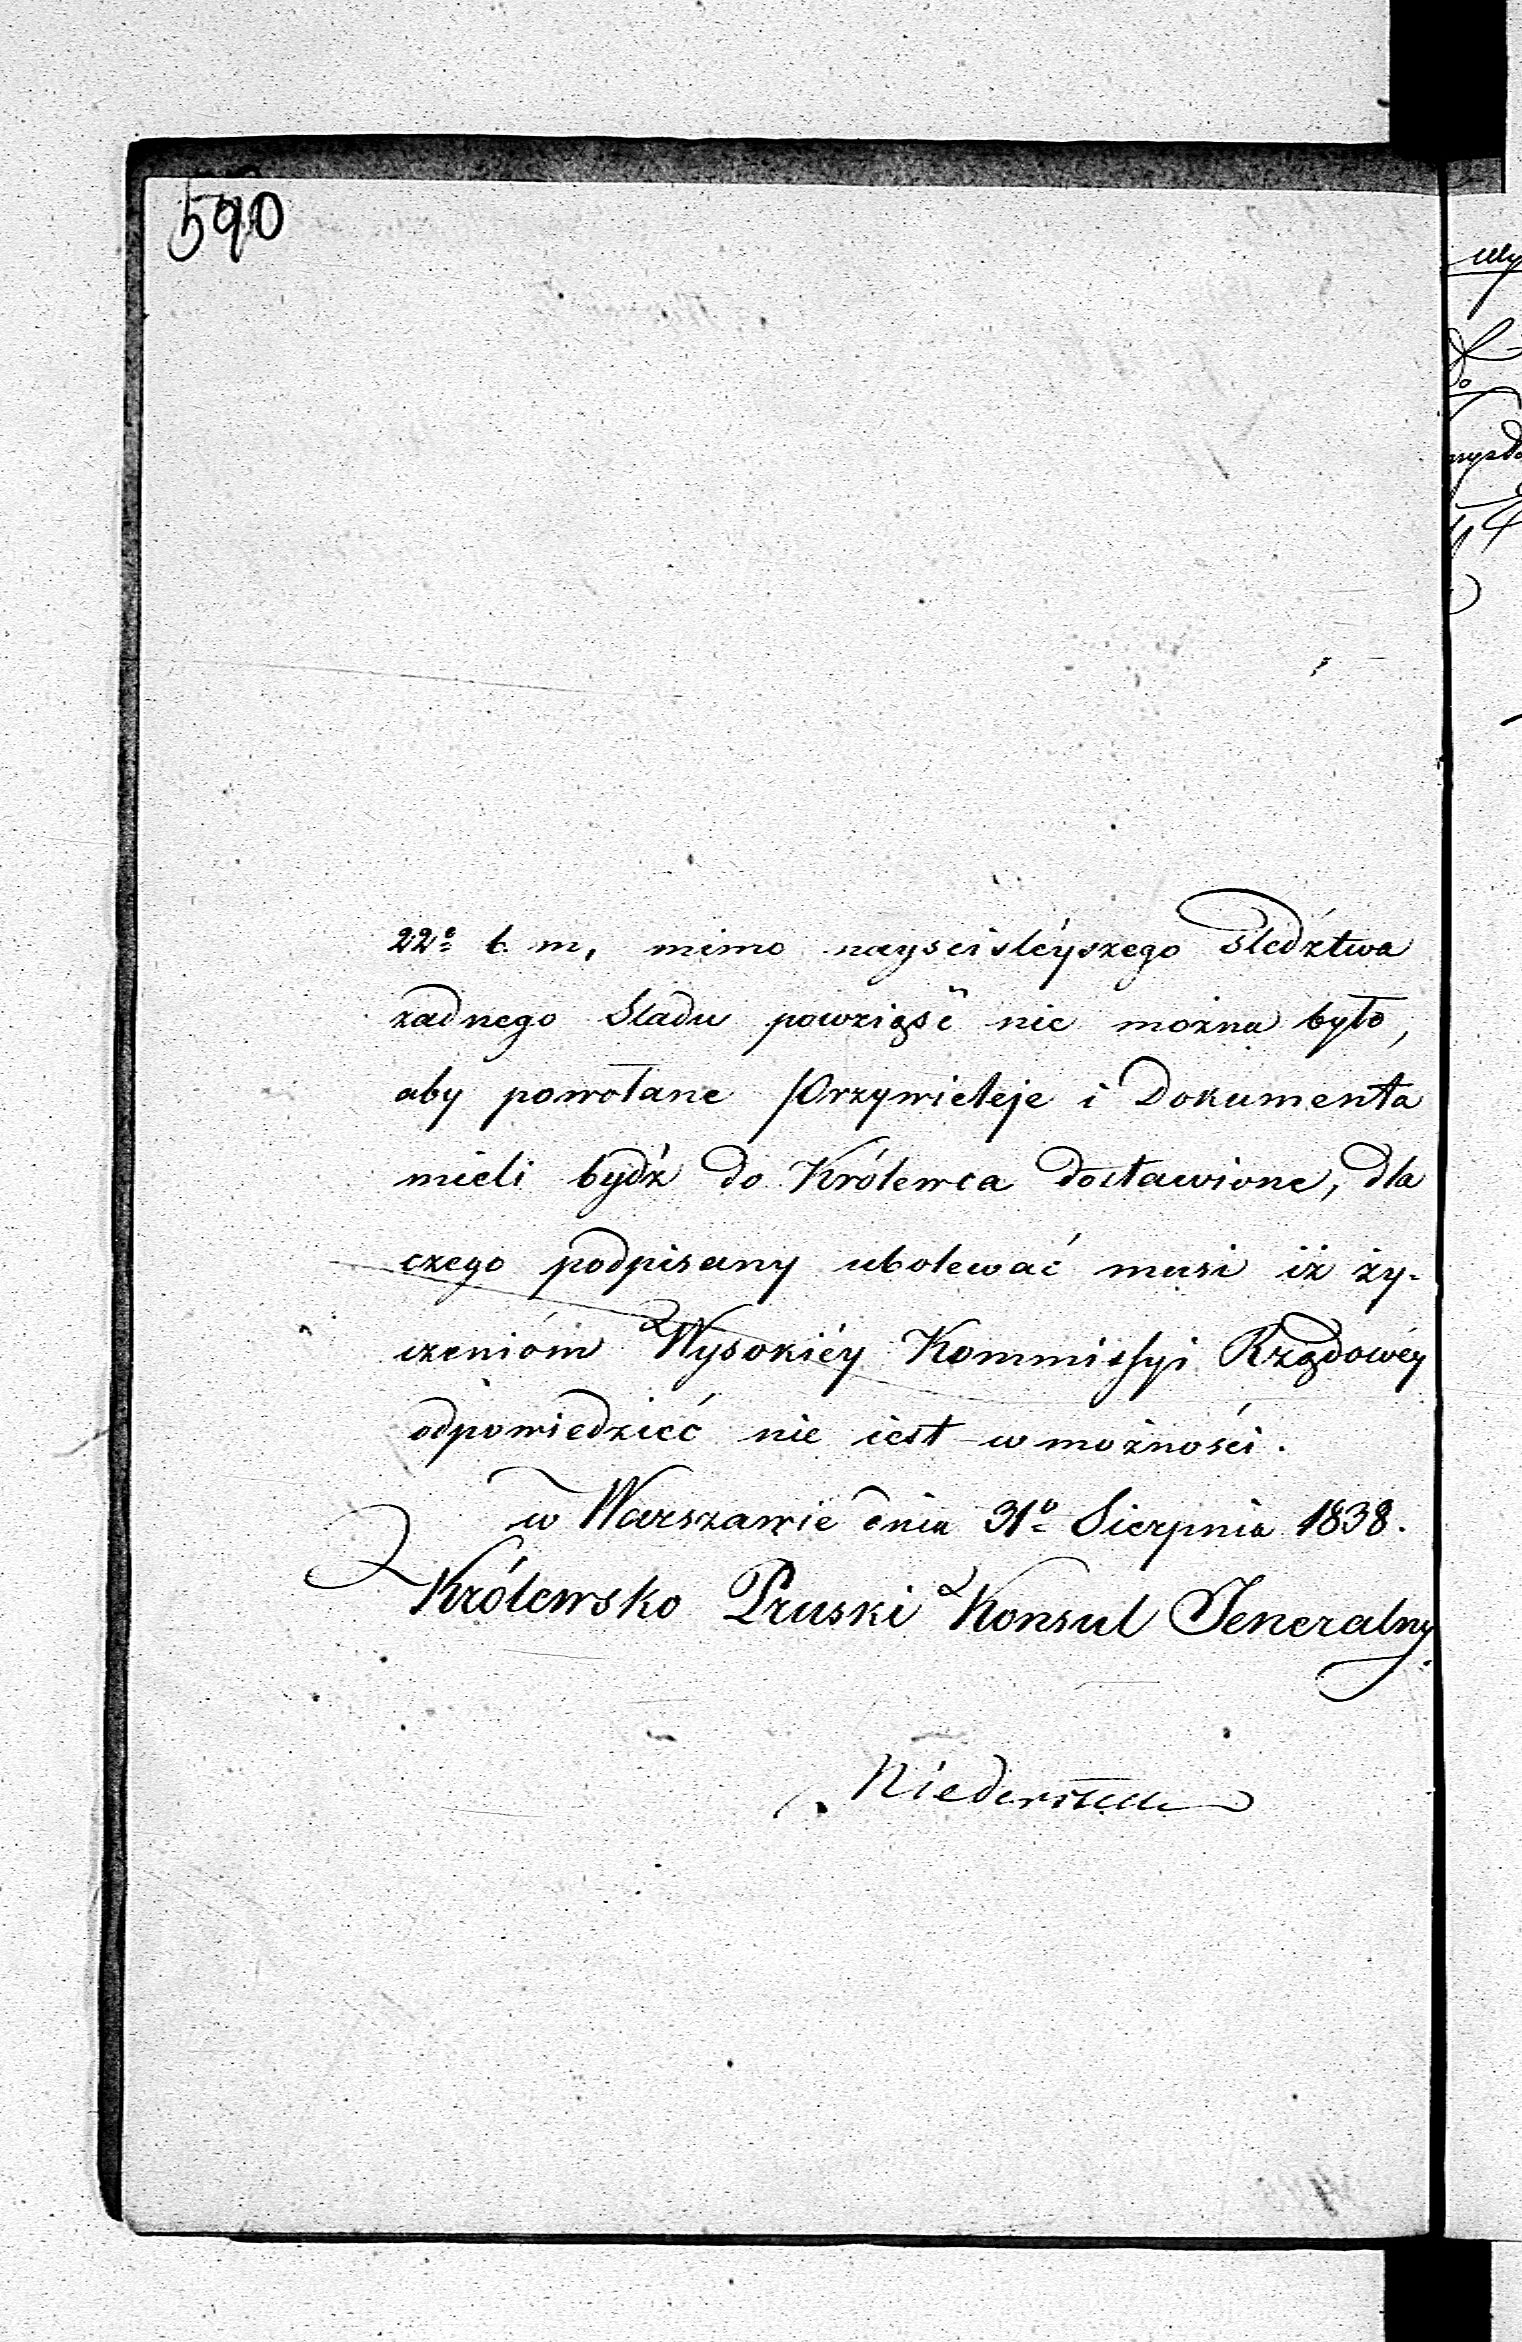 590
22º t. m. mimo nayscisléyszego sledźtwa
żadnego sladu powziąsć nie można było,
aby powołane Przywileje i Dokumenta
mieli bydź do Królewca dostawione, dla
czego podpisany ubolewać musi iż ży-
czenióm Wysokiéy Kommissyi Rządowéy
odpowiedzieć nie iest w możności.
w Warszawie dnia 31º Sierpnia 1838.
Królewsko Pruski Konsul Jeneralny.
Niederstetter